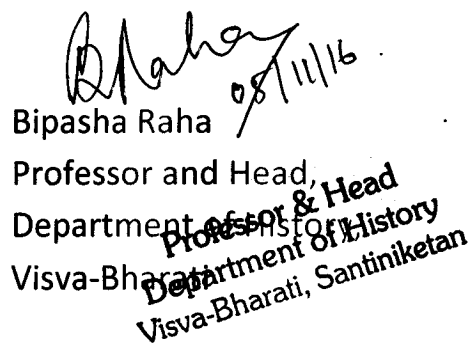 BRaha
08/11/16
Bipasha Raha
Professor and Head,
Department of History,
Visva-Bharati
Professor & Head
Department of History
Visva-Bharati, Santiniketan